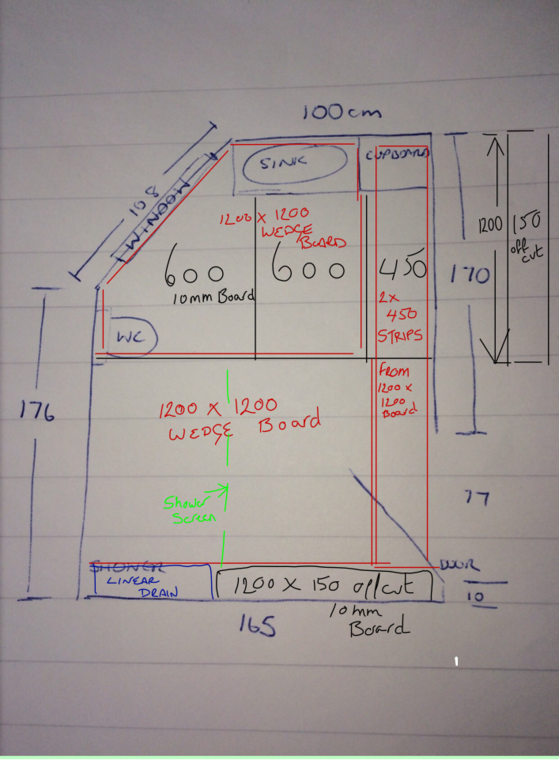 100cm
108
WINDOW
SINK
CUPBOARD
1200 X 1200
WEDGE
BOARD
600
600
450
10mm Board
2x
450
STRIPS
1200
150
off
cut
170
WC
FROM
1200
x
1200
Board
176
1200 X 1200
WEDGE Board
Shower
Screen
77
SHOWER
LINEAR
DRAIN
1200 X 150 offcut
DOOR
10
10mm
Board
165